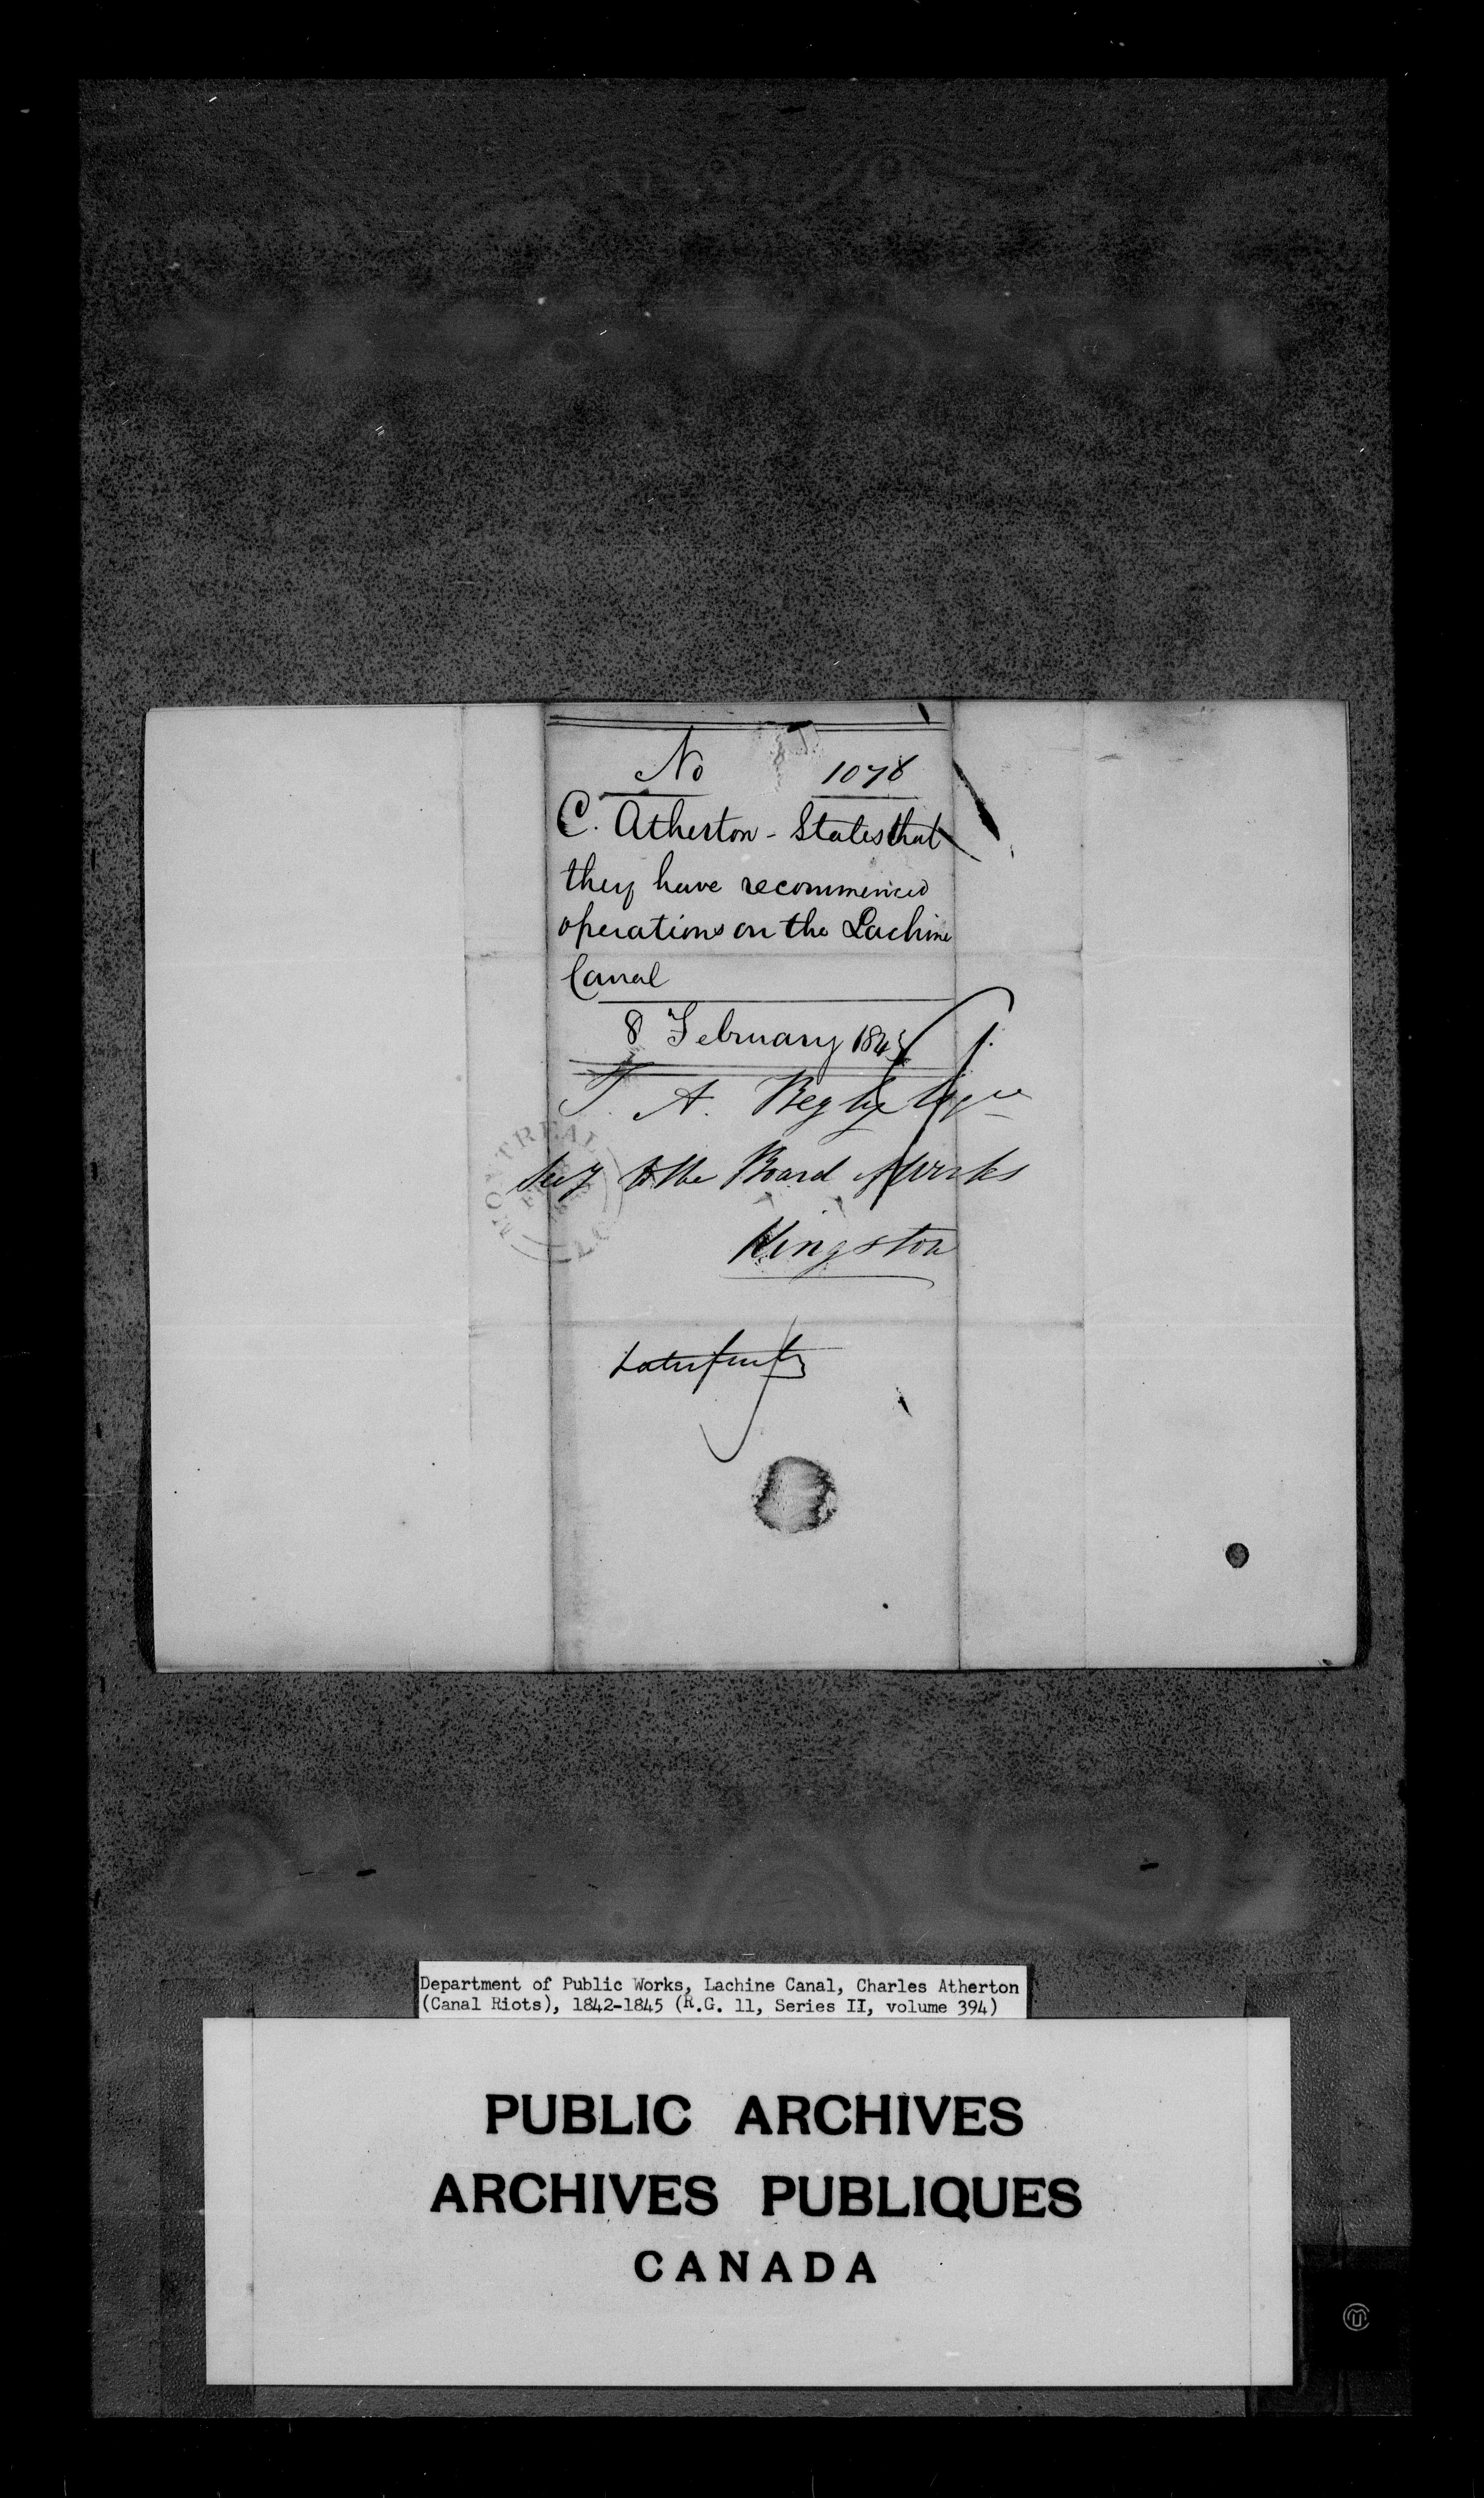 No 1078
C. Atherton - States that
they have recommenced
operations on the Lachine
Canal
8 February 1843
T. A. Begly Esqre
Secy to the Board of Works
Kingston
MONTREAL
Department of Public Works, Lachine Canal, Charles Atherton
(Canal Riots), 1842-1845 (R.G. 11, Series II, volume 394)
PUBLIC ARCHIVES
ARCHIVES PUBLIQUES
CANADA